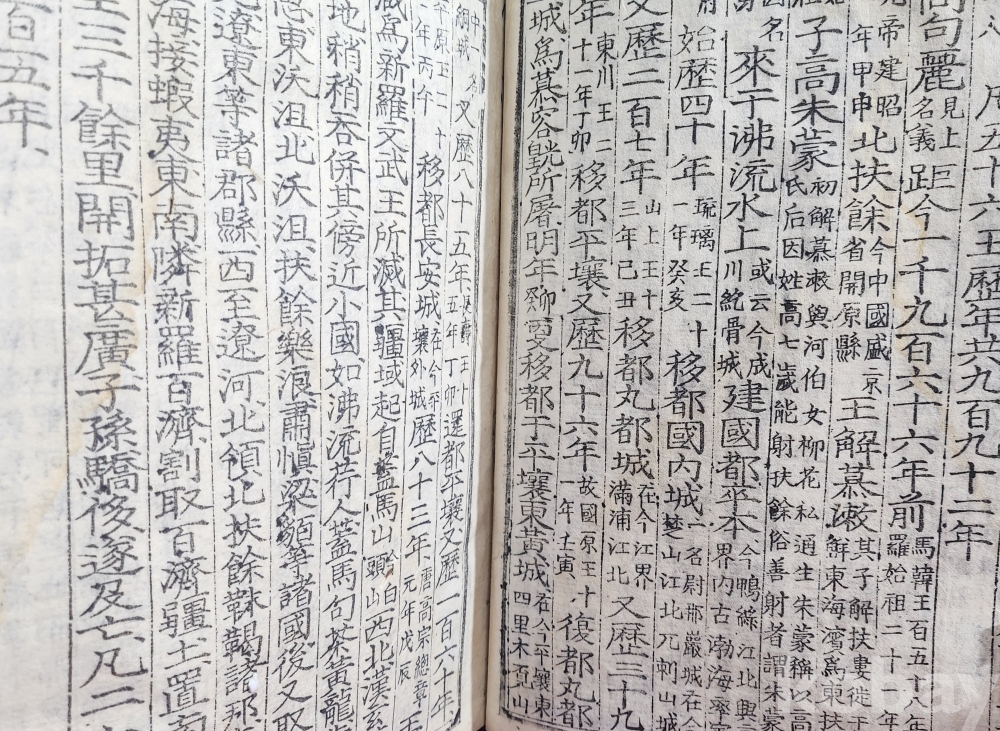 五十六王歷年共九百九十二年
句麗見上名義距今一千九百六十六年前馬韓王百五十八年羅始祖二十一年
帝建昭年甲申北扶餘今中國盛京省開原縣王解慕漱其子解扶婁徙于鮮東海濱為東扶
子高朱蒙初解慕漱與河伯女柳花私通生朱蒙稱以高氏后因姓高七歲能射扶餘俗善射者謂朱蒙
因名來于沸流水上或云今成川紇骨城建國都平本今鴨綠江北興界內古渤海率賓
始歷四十年琉璃王二十一年癸亥移都國內城一名尉那巖城在今楚山江北兀剌山城
又歷二百七年山上王十三年己丑移都丸都城在今江界滿浦江北又歷三十九
年東川王二十一年丁卯移都平壤又歷九十六年故國原王十一年壬寅復都丸都
城為慕容皝所屠明年癸卯更移都于平壤東黃城在今平壤東四里木覓山
又歷八十五年長壽王十五年丁卯還都平壤又歷一百六十年
平原王二十年丙午移都長安城在今平壤外城歷八十三年唐高宗總章元年戊辰王
滅為新羅文武王所滅其疆域起自蓋馬山白頭山西北漢玄
地稍稍吞併其傍近小國如沸流荇人蓋馬句茶黃龍
東沃沮北沃沮扶餘樂浪肅愼梁貊等諸國後又取
遼東等諸郡縣西至遼河北領北扶餘靺鞨諸
海接蝦夷東南隣新羅百濟割取百濟疆土置
三千餘里開拓甚廣子孫驕後遂及亡凡二
百五年